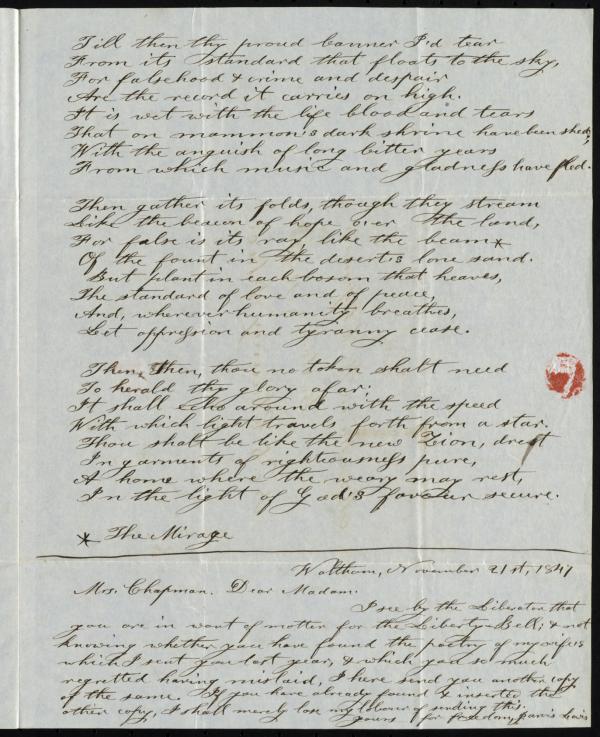 Till then thy proud banner I'd tear
From its standard that floats to the sky,
For falsehood & crime and despair
Are the record it carries on high.
It is wet with the life blood and tears
That on mammon's dark shrine have been shed,
With the anguish of long bitter years
From which music and gladness have fled.
Then gather its folds, though they stream
Like the beacon of hope over the land,
For false is its ray, like the beam *
Of the fount in the desert's lone sand.
But plant in each bosom that heaves,
The standard of love and of peace,
And, wherever humanity breathes,
Let oppression and tyranny cease.
Then, then, thou no token shalt need
To herald thy glory afar;
It shall echo around with the speed
With which light travels forth from a star.
Thou shalt be like the new Zion, drest
In garments of righteousness pure,
A home where the weary may rest,
In the light of God's favour secure.
* The Mirage
Waltham, November 21st, 1841
Mrs. Chapman. Dear Madam:
I see by the Liberator that
you are in want of matter for the Liberty Bell; & not
knowing whether you have found the poetry of my wife's
which I sent you last year, & which you so much
regretted having mislaid, I here send you another copy
of the same. If you have already found & inserted the
other copy, I shall merely lose my labour of sending this.
yours for freedom,